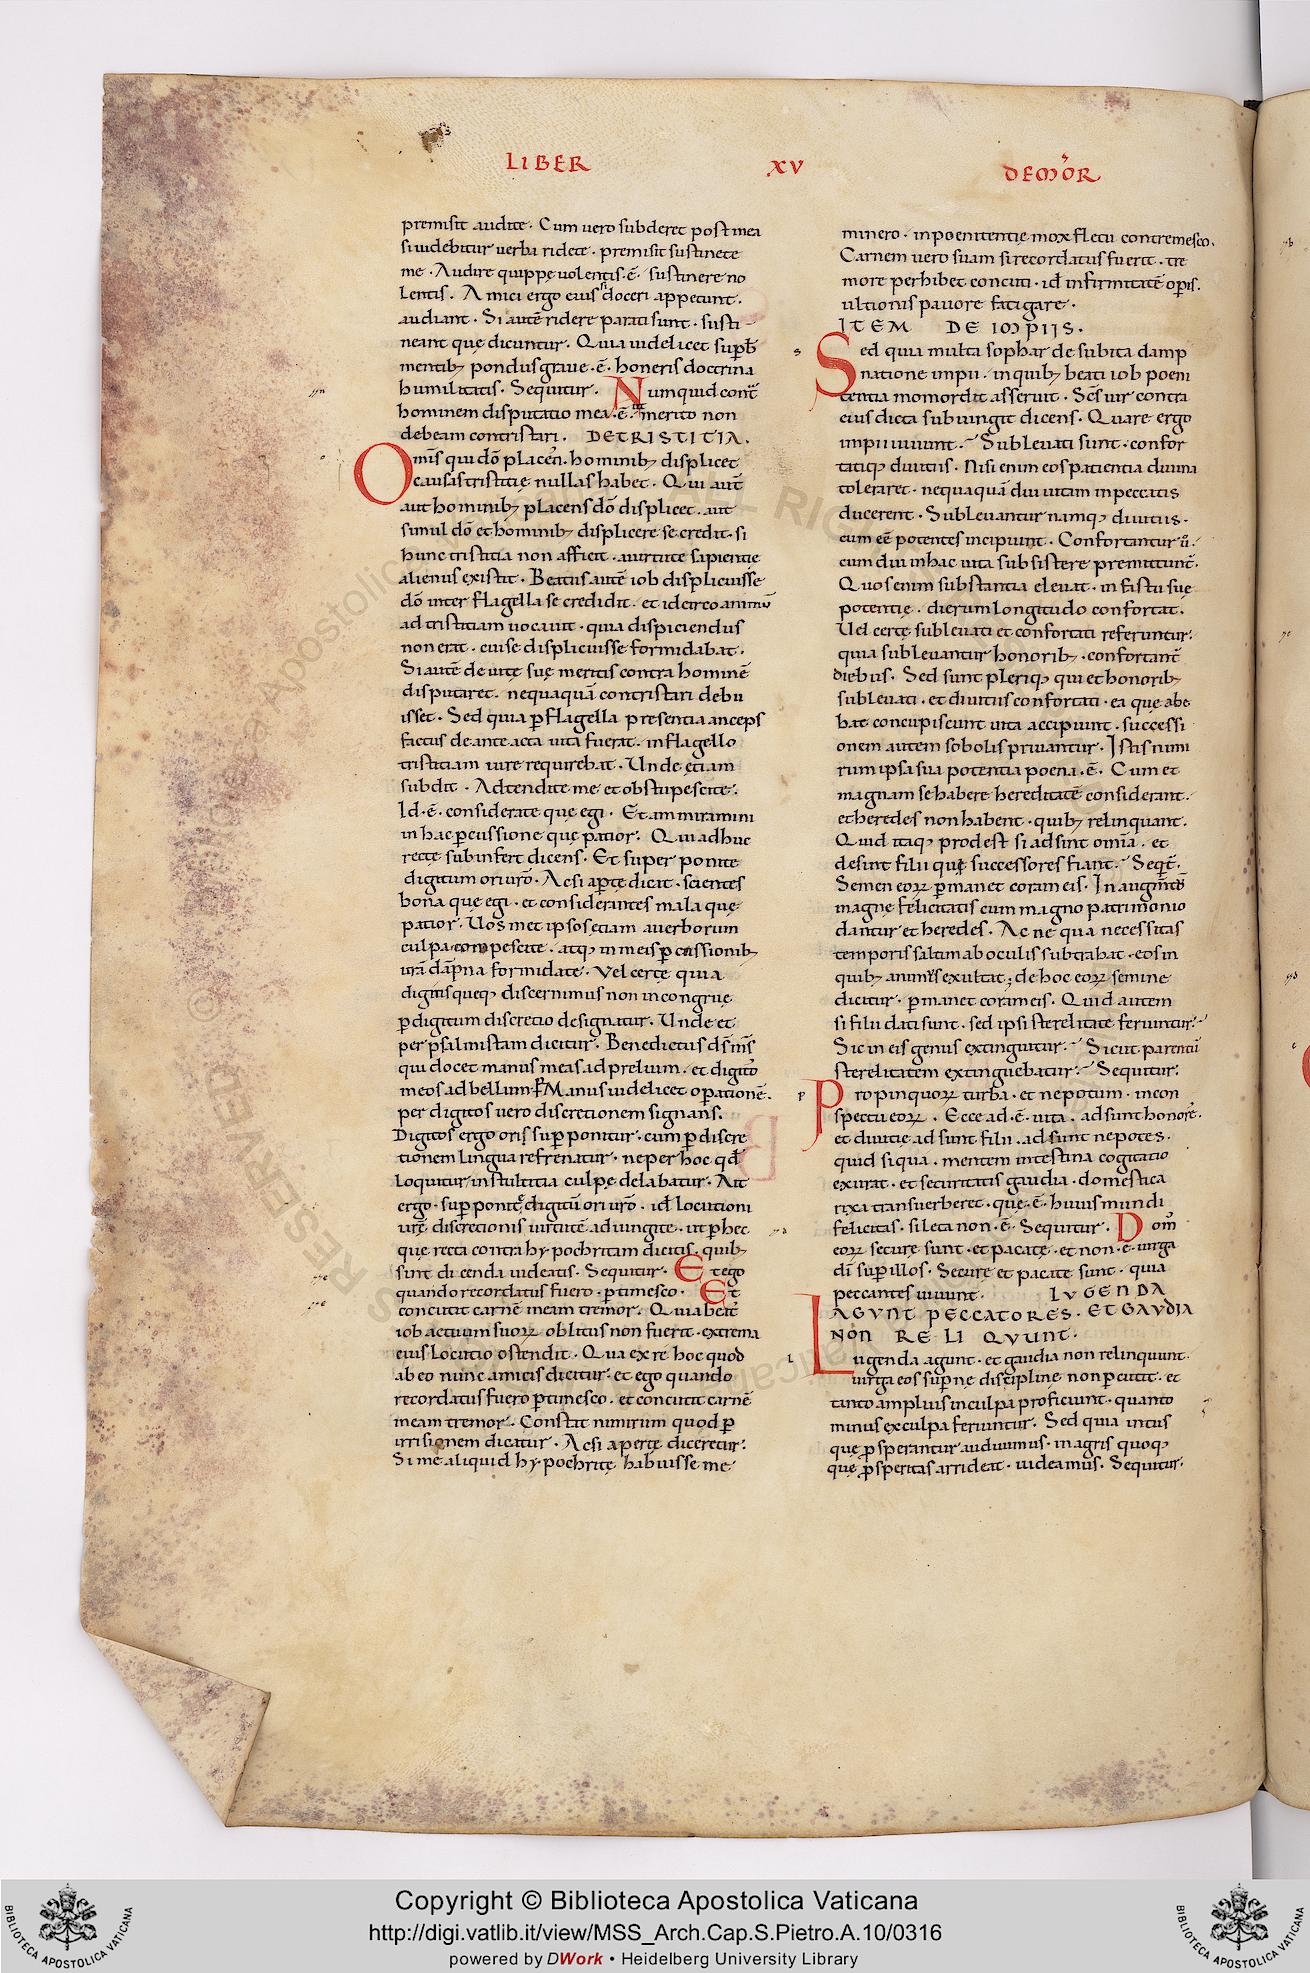 LIBER XV DE MOR
premisit audite. Cum vero subderet post mea
si videbitur verba ridete. premisit sustinete
me. Audire quippe volentis. ē. sustinere no
lentis. Amici ergo eius si doceri appetunt.
audiant. Si autē ridere parati sunt. susti
neant quę dicuntur. Quia videlicet supb
mentib; pondus grave. ē. honeris doctrina
humilitatis. Sequitur. Numquid cont
hominem disputatio mea. ē. ut merito non
debeam contristari. DE TRISTITIA.
Omis qui dō placen. hominib; displicet
causas tristitię nullas habet. Qui aut
aut hominib; placens dō displicet. aut
simul dō et hominib; displicere se credit. si
hunc tristitia non afficit. a virtute sapientię
alienus existit. Beatus autē iob displicuisse
dō inter flagella se credidit. et idcirco animū
ad tristitiam vocavit. quia dispiciendus
non erat. cui se displicuisse formidabat.
Si autē de vitę suę meritis contra hominē
disputaret. nequaquā contristari debu
isset. Sed quia p flagella presentia anceps
factus de ante acta vita fuerat. in flagello
tristitiam iure requirebat. Unde etiam
subdit. Adtendite me et obstupescite.
Id. ē. considerate quę egi. Et am miramini
in hac pcussione quę patior. Qui adhuc
recte subinfert dicens. Et super ponite
digitum ori vrō. Ac si apte dicat. scientes
bona quę egi. et considerantes mala quę
patior. Vos met ipsos etiam a verborum
culpa compescite. atq; in meis pcussionib;
vrā dāpna formidate. Vel certe quia
digitis queq; discernimus non incongrue
p digitum discretio designatur. Unde et
per psalmistam dicitur. Benedictus ds ms
qui docet manus meas ad prelium. et digitos
meos ad bellum. Manus videlicet opationē.
per digitos vero discretionem signans.
Digitos ergo oris sup ponitur. cum p discre
tionem lingua refrenatur. ne per hoc qd
loquitur in stultitia culpę delabatur. Ait
ergo. sup ponite digitū ori vrō. id locutioni
vrę discretionis virtutē adiungite. ut p hec
que recta contra hypochritam dicitis. quib;
sint dicenda videatis. Sequitur. Et ego
quando recordatus fuero. ptimesco. Et
concutit carnē meam tremor. Quia beat
iob actuum suorꝝ oblitus non fuerit. extrema
eius locutio ostendit. Qua ex re hoc quod
ab eo nunc amicis dicitur. et ego quando
recordatus fuero ptimesco. et concutit carnē
meam tremor. Constat nimirum quod p
irrisionem dicatur. Ac si aperte diceretur.
Si me aliquid hypochritę habuisse me
minero. in poenitentię mox fletu contremesco.
Carnem vero suam si recordatus fuerit. tre
more perhibet concuti. id infirmitatē opis.
ultionis pavore fatigare.
ITEM DE IMPIIS.
Sed quia multa sophar de subita damp
natione impii. in quib; beati iob poeni
tentia momordit asseruit. Scs vir contra
eius dicta subiungit dicens. Quare ergo
impii vivunt. Sublevati sunt. confor
tatiq; divitiis. Nisi enim eos patientia divina
toleraret. nequaquā diu vitam in peccatis
ducerent. Sublevantur namq; divitiis.
cum eē potentes incipiunt. Confortantur ū.
cum diu in hac vita subsistere premittunt.
Quos enim substantia elevat. in fastu suę
potentię. dierum longitudo confortat.
Vel certę sublevati et confortati referuntur.
quia sublevantur honorib; confortant
diebus. Sed sunt pleriq; qui et honorib;
sublevati. et divitiis confortati. ea que abe
bat concupiscunt vita accipiunt. successi
onem autem sobolis privantur. Istis nimi
rum ipsa sua potentia poena. ē. Cum et
magnam se habere hereditatē considerant.
et heredes non habent. quib; relinquant.
Quid itaq; prodest si ad sint omīa. et
desint filii quę successores fiant. Seqt.
Semen eorꝝ pmanet coram eis. In augmto
magne felicitatis cum magno patrimonio
dantur et heredes. Ac ne qua necessitas
temporis saltim ab oculis subtrabat. eos in
quib; animus exultat; de hoc eorꝝ semine
dicitur. pmanet coram eis. Quid autem
si filii dati sunt. sed ipsi sterelitate feriuntur.
Sic in eis genus extinguitur. Sicut parentū
sterelitatem extinguebatur. Sequitur.
Propinquorꝝ turba. et nepotum. in con
spectu eorꝝ. Ecce ad. ē. vita. ad sunt honore.
et divitię ad sunt filii. ad sunt nepotes.
quid si qua. mentem intestina cogitatio
exurat. et securitatis gaudia. domestica
rixa transverberet. quę. ē. huius mundi
felicitas. si leta non. ē. Sequitur. Dom
eorꝝ securę sunt. et pacatę. et non. ē. virga
di sup illos. Secure et pacate sunt. quia
peccantes vivunt. LUGENDA
AGUNT PECCATORES. ET GAUDIA
NON RELIQUUNT.
Lugenda agunt. et gaudia non relinquunt.
virga eos supne discipline non pcutit. et
tanto amplius in culpa proficiunt. quanto
minus ex culpa feriuntur. Sed quia intus
que psperantur audivimus. in agris quoq;
que psperitas arrideat. videamus. Sequitur.
BIBLIOTECA APOSTOLICA VATICANA
Copyright © Biblioteca Apostolica Vaticana
http://digi.vatlib.it/view/MSS_Arch.Cap.S.Pietro.A.10/0316
powered by DWork • Heidelberg University Library
BIBLIOTECA APOSTOLICA VATICANA